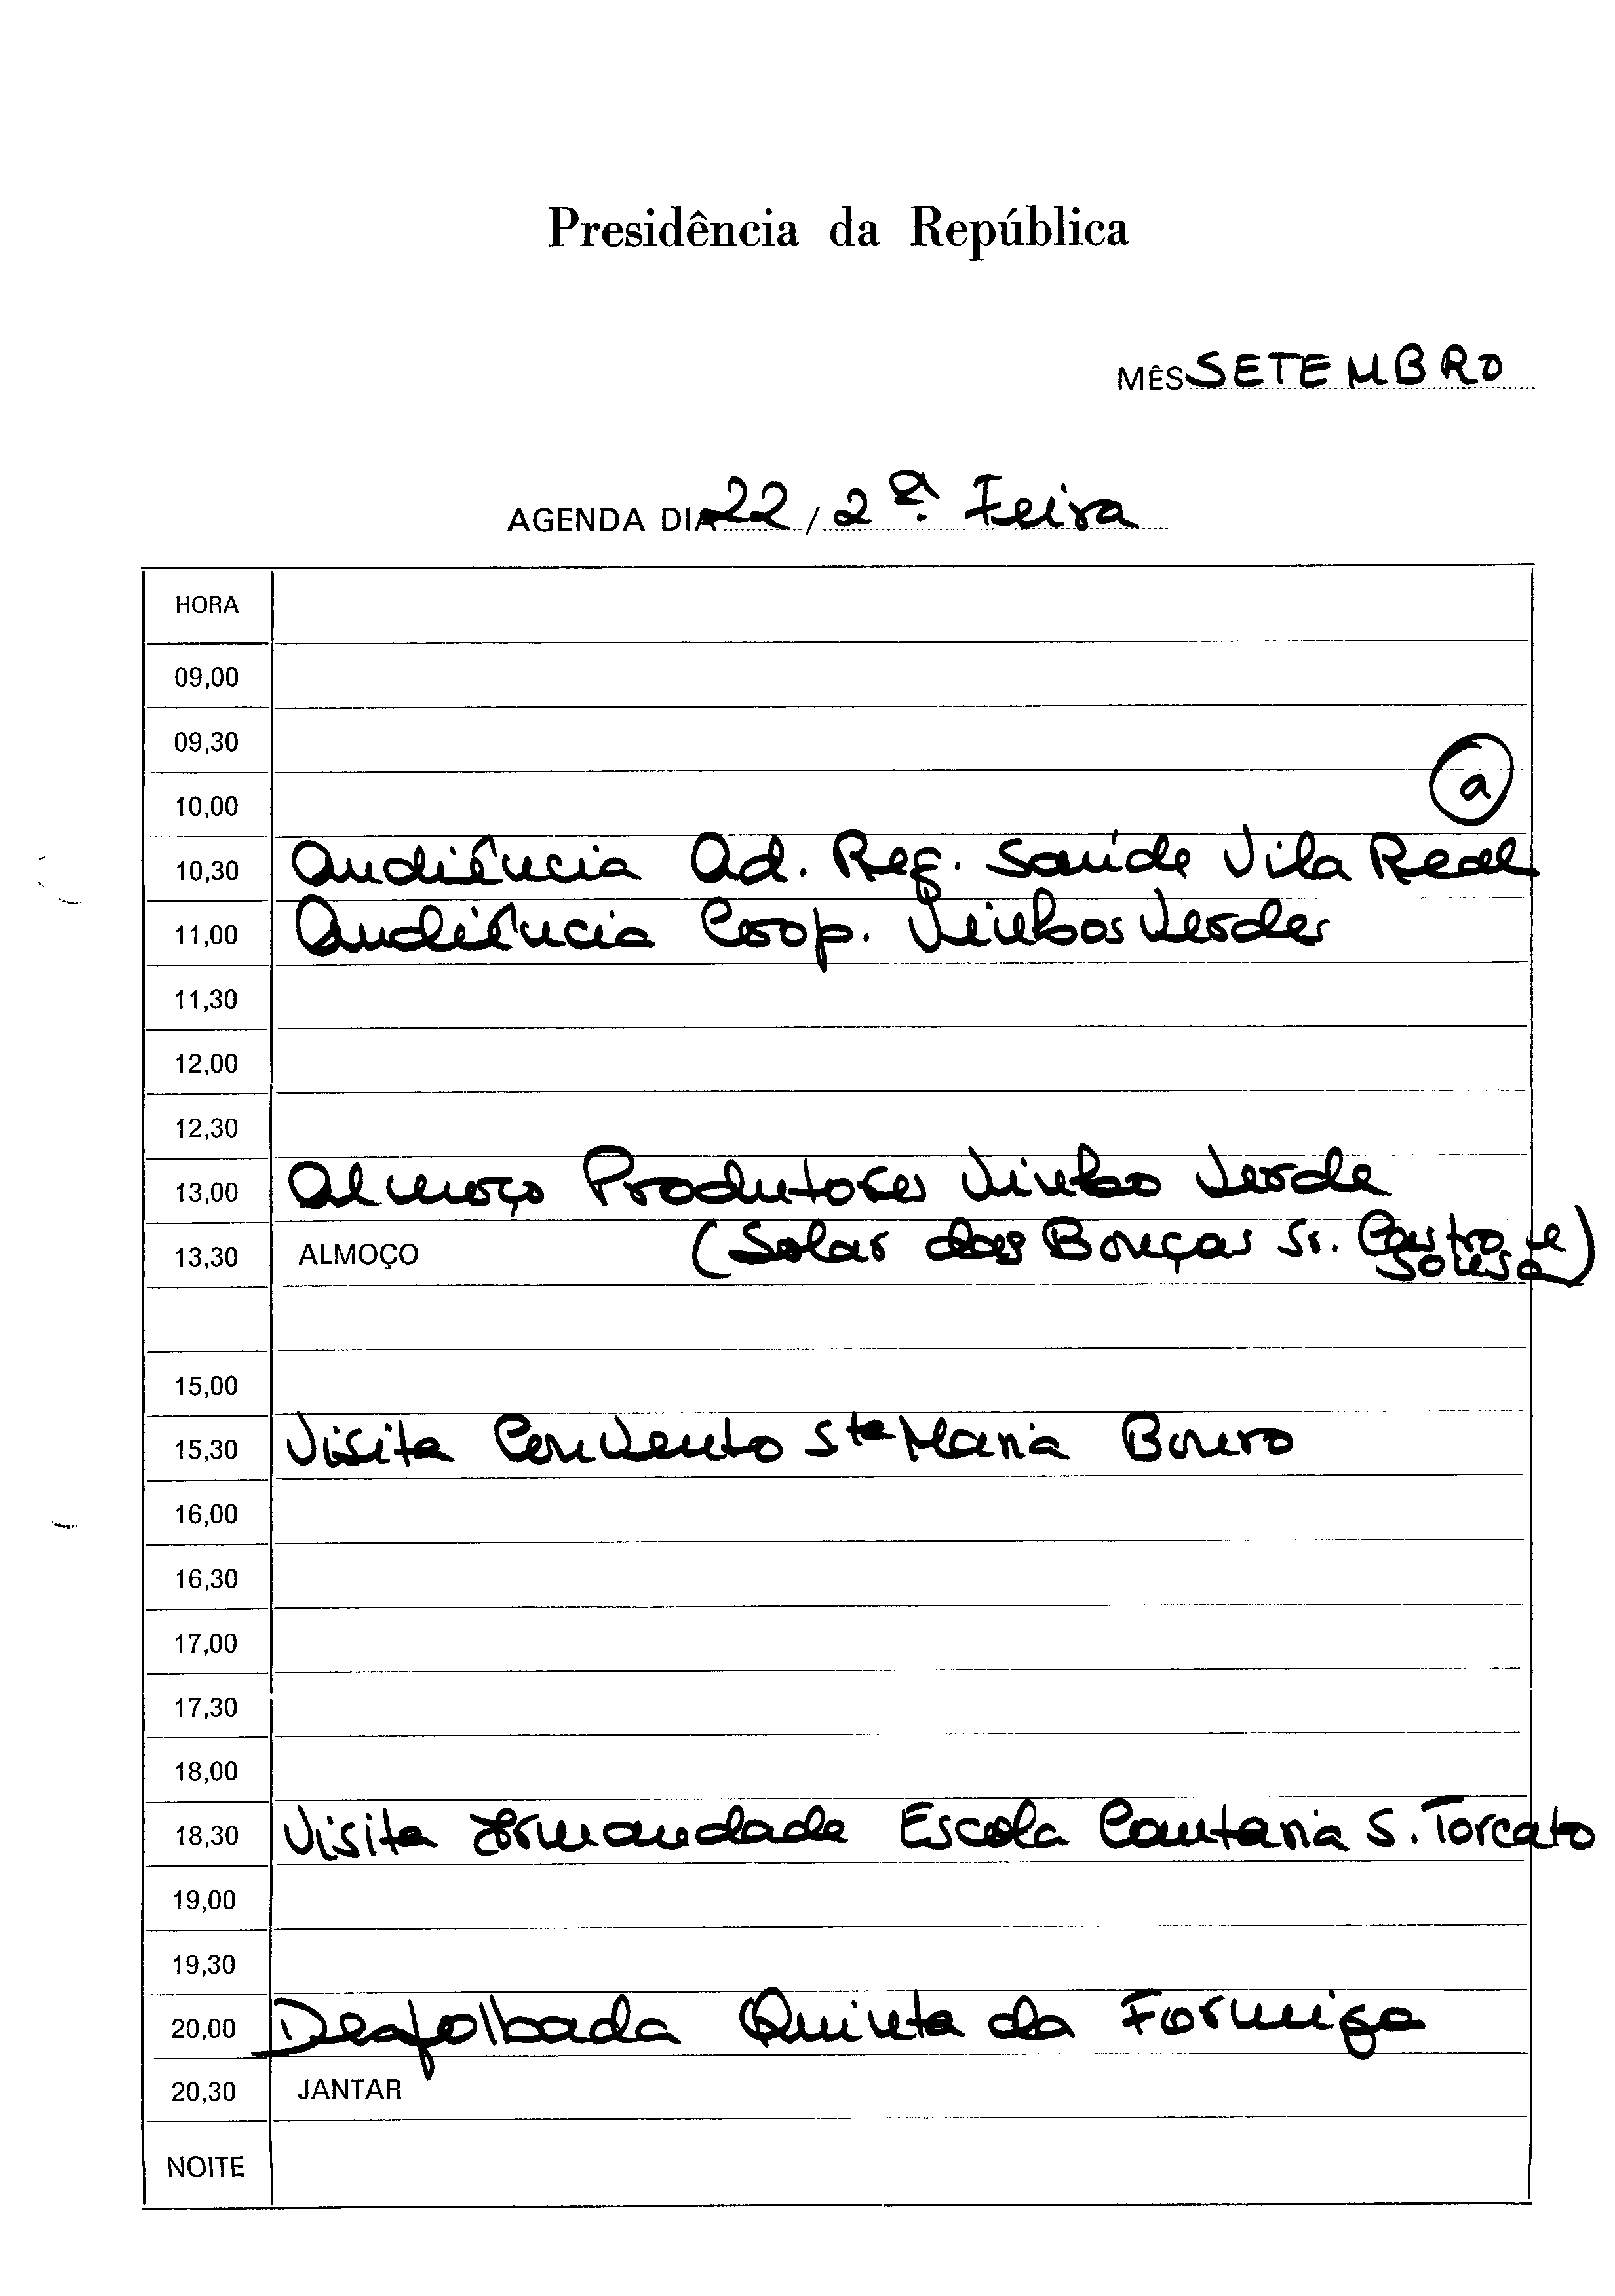 Presidência da República
MÊS SETEMBRO
AGENDA DIA 22 / 2ª Feira
HORA
09,00
09,30
a
10,00
10,30 Audiência Ad. Reg. Saúde Vila Real
11,00 Audiência Coop. Vinhos Verdes
11,30
12,00
12,30
13,00 Almoço Produtores Vinho Verde
13,30 ALMOÇO (Solar das Bouças Sr. Castro e
Sousa)
15,00
15,30 Visita Convento Sta Maria Bouro
16,00
16,30
17,00
17,30
18,00
18,30 Visita Irmandade Escola Cantaria S. Torcato
19,00
19,30
20,00 Desfolhada Quinta da Formiga
20,30 JANTAR
NOITE